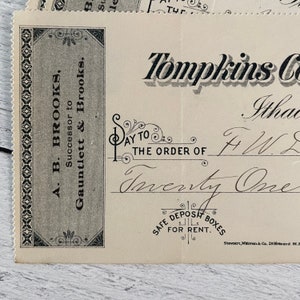 A. B. BROOKS,
Successor to
Gauntlett & Brooks.
Tompkins Co
Ithac
PAY TO
THE ORDER OF F. W.
Twenty One
SAFE DEPOSIT BOXES
FOR RENT.